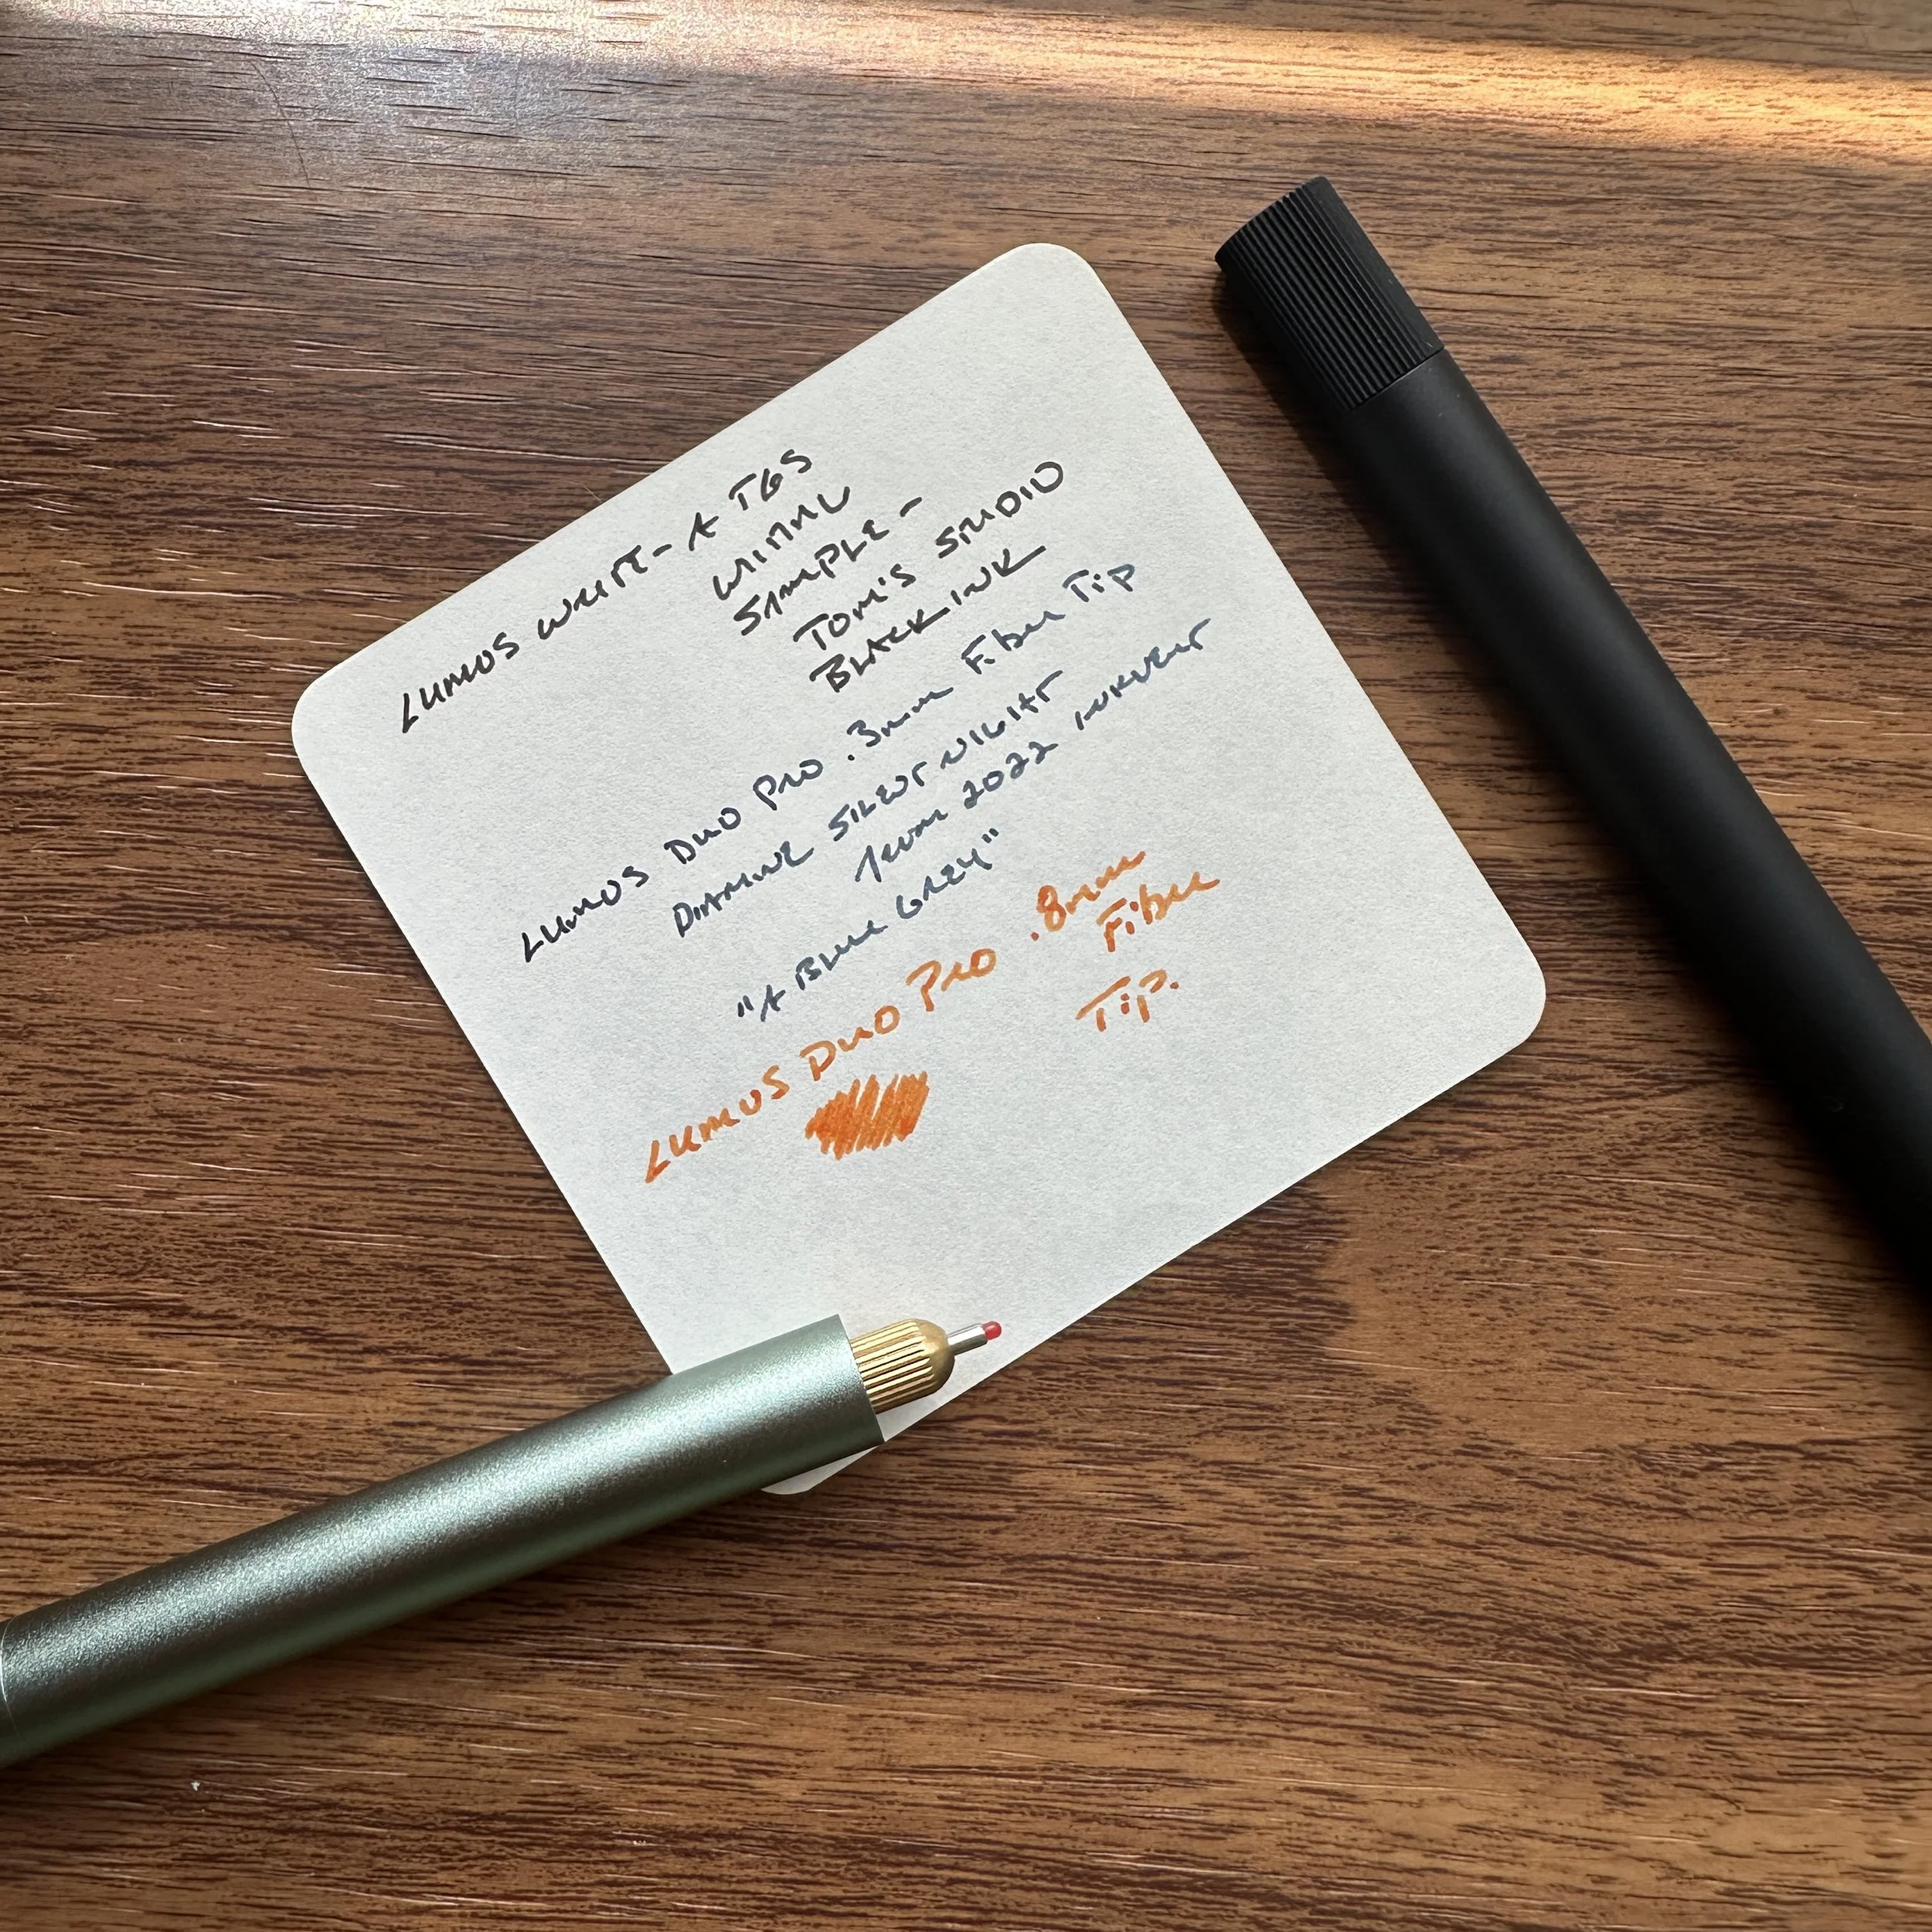 LUMOS WRITE - A TGS
WITH
SAMPLE -
TOM'S STUDIO
BLACK INK
LUMOS DUO PRO .3mm Fiber Tip
DIAMINE SILENT NIGHT
from 2022 INKVENT
"A BLUE GREY"
LUMOS DUO PRO .8mm
Fiber
Tip.